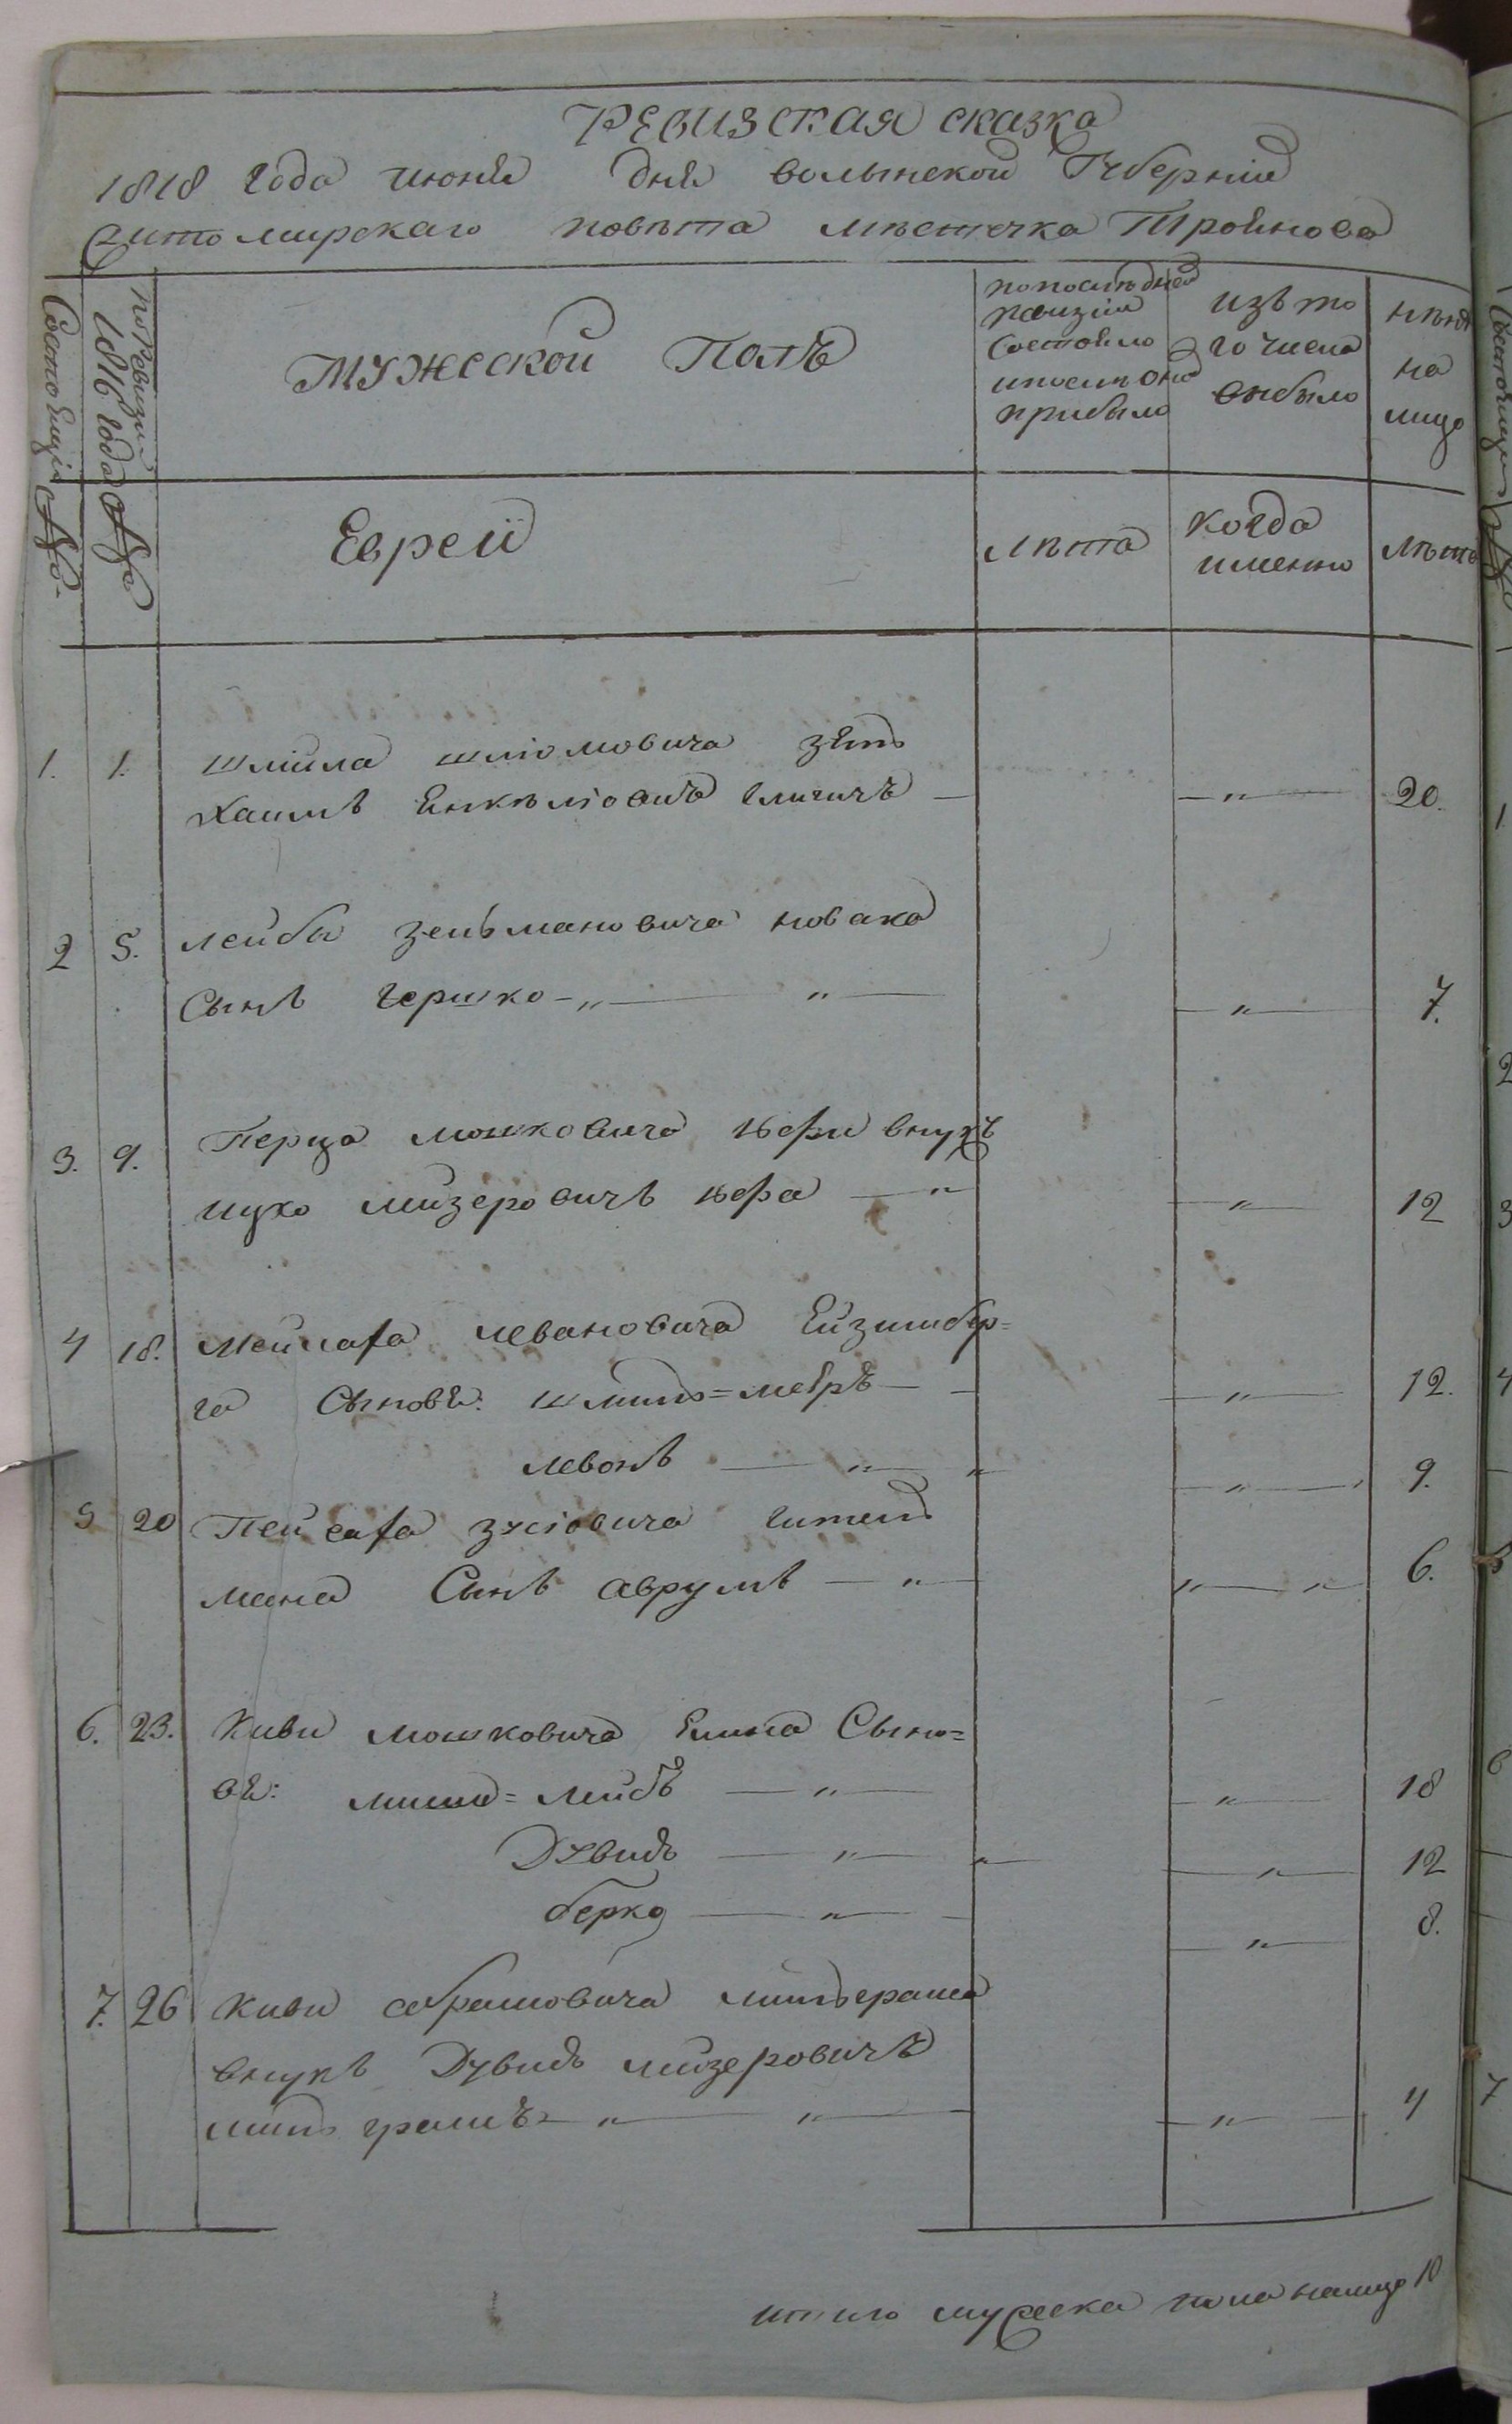 Ревизская сказка
1818 года июня дня волынской Губернии
Житомирского повѣта мѣстечка Троянова
Состоящiи №
по ревизии 1816 года №
Мужеской Полъ
по послѣдней ревизiи состояло и после оной прибыло
изъ того числа выбыло
ныне на лицо
Евреи
лѣта
когда именно
лѣта
1. 1. шмiила шлiомовича зять
Хаимъ Енкелiовичъ — " — 20.
2 5. лейбы зельмановича новака
Сынъ гершко - " — " — " — 7.
3. 9. Перца мошковича внукъ
лизеровичъ — " — " — 12
4 18. Мейлаха левановича Ейзимбер=
га Сыновя: шмиль=меeръ — — " — 12.
леванъ — " — " — " — 9.
5 20 Пейсаха зусiовича гител
мана Сынъ аврумъ — " — " — " — 6.
6. 23. Киви мошковича Сыно=
вя: лейбъ — " — " — 18
Дувидъ — " — " — " — 12
берко — " — — " — 8.
7. 26 Киви абрамовича
внукъ Дувидъ лизеровичъ
- " — " — " — 4
итого мужеска пола налицо 10